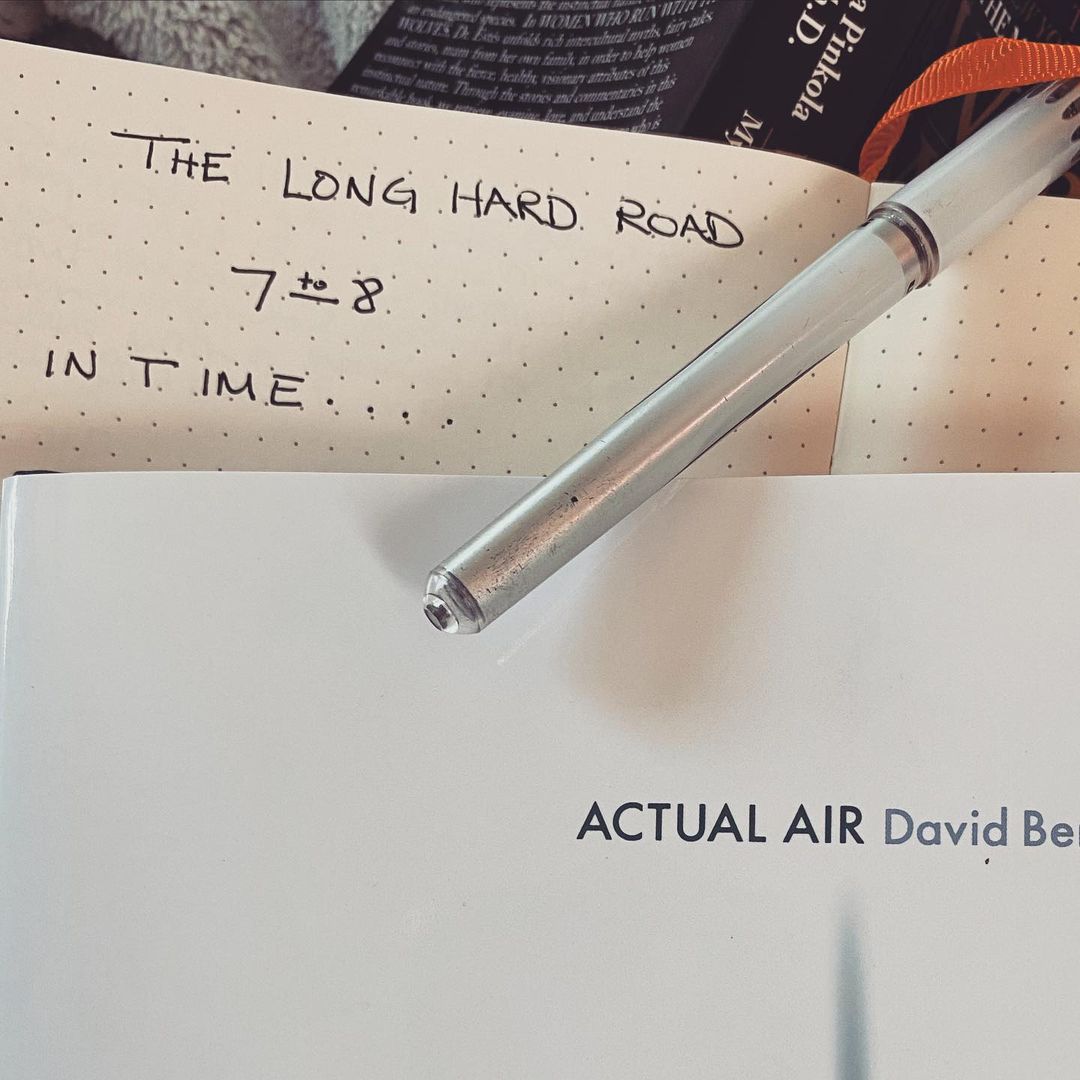 represents the instinctual nature
an endangered species. In WOMEN WHO RUN WITH THE
WOLVES, Dr. Estés unfolds rich intercultural myths, fairy tales,
and stories, many from her own family, in order to help women
reconnect with the fierce, healthy, visionary attributes of this
instinctual nature. Through the stories and commentaries in this
remarkable book, we examine, love, and understand the
who is
a Pinkola
h.D.
My
THE LONG HARD ROAD
7 to 8
IN TIME....
ACTUAL AIR David Ber